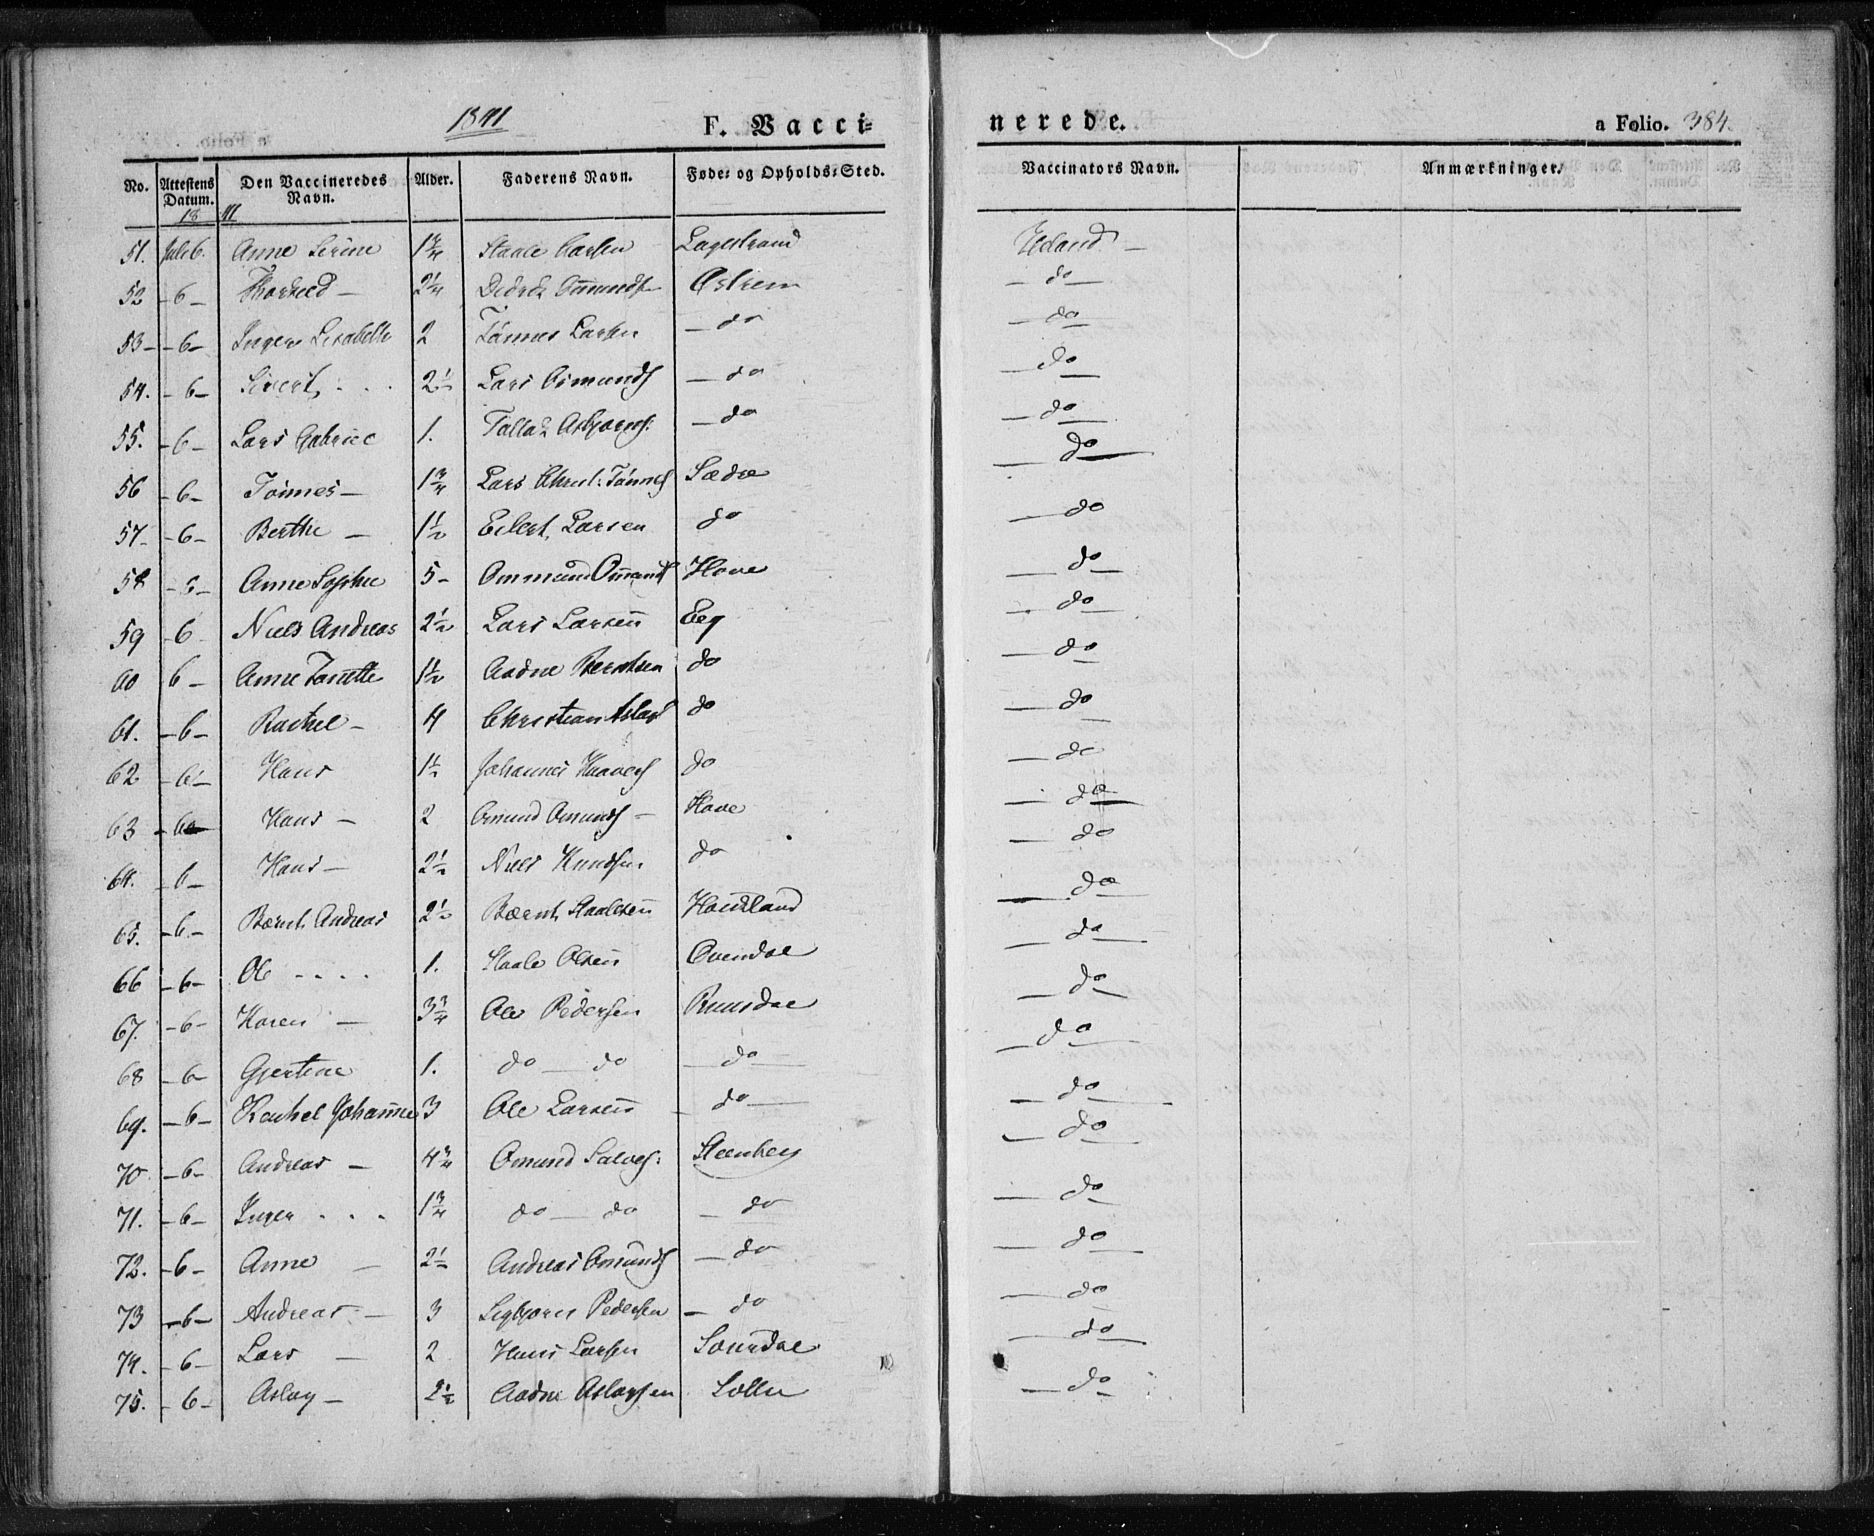 1841 F. Vacci= nerede. a Folio. 384.
No. Attestens Datum. Den Vaccineredes Navn. Alder. Faderens Navn. Føde= og Opholds=Sted. Vaccinators Navn. Anmærkninger.
18 41
51. Juli 6. Anne Serine 1 3/4 Staale Larsen Lagestrand
52 - 6 - 2 1/4 Østrem - do -
53 - - 6 - Inger Lisabeth 2 Tønnes Larsen - do - do -
54. - 6 - Sivert . . . 2 1/2 Lars Osmunds - do - do -
55. - 6 - Lars Gabriel 1. Tallak Asbjørns: - do - do -
56 - 6 - Tønnes - 1 3/4 Lars Christ: Tønnes Sædre - do -
57 - - 6 - Berthe - 1 1/2 Eilert Larsen do - do
58 - 6 - Anne Sophie 5 - Ommund Ommunds Hove - do -
59 6 Niels Andreas 2 1/2 Lars Larsen Eeg - do -
60 6 - Anne Tonette 1 1/2 Aadne Berntsen do - do -
61. - 6 - Rachel - 4 Christian Aslags do - do -
62 - 6 - Hans 1 1/2 Johannes do - do
63 - 6 - Hans - 2 Omund Omunds - Hove - do -
64. - 6 - Hans - 2 1/2 Niels Knudsen do - do
65. - 6 - Bærnt Andreas 2 1/2 Bærnt Staalesen Houland - do -
66 - 6 - Ole . . . . 1. Staale Olsen Ovendal - do -
67. - 6 - Karen - 3 3/4 Ole Pedersen Ruusdal - do -
68 - 6 - Gjertine 1. do - do - do - - do -
69. - 6 - Rachel Johanne 3 Ole Larsen - do - - do -
70 - 6 - Andreas - 4 3/4 Omund Salves: Steenberg - do -
71. - 6 - Inger . . . 1 3/4 do - do - do - do -
72. - 6 - Anne - 2 1/2 Andreas Omunds - do - do -
73 - 6 - Andreas - 3 Sigbjørn Pedersen - do - do
74. - 6 - Lars - 2 Hans Larsen - do -
75. - 6 - Aslag - 2 1/2 Aadne Aslagsen - do -